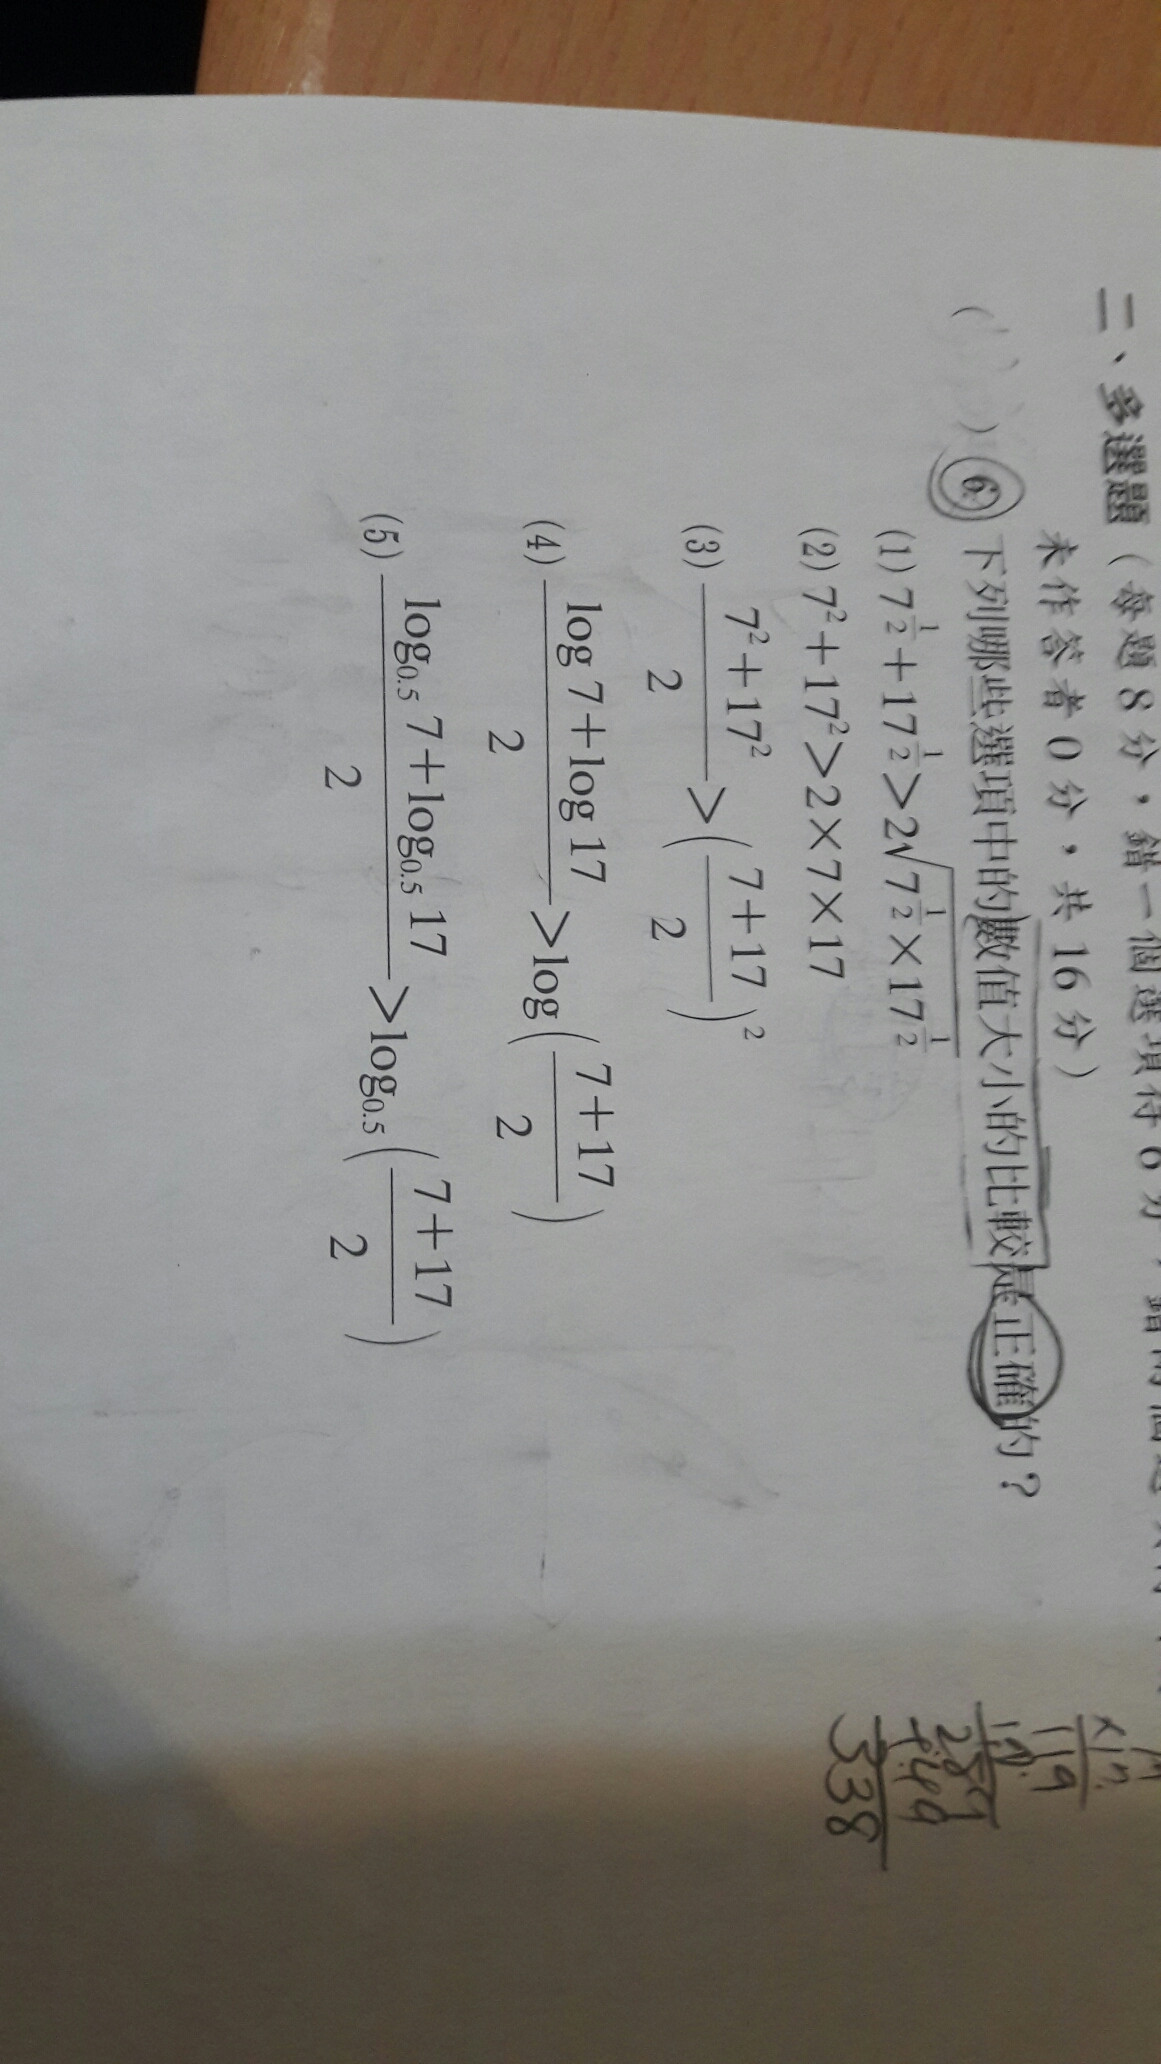 二、多選題(每題8分,錯一個選項得6分,錯兩個選項
未作答者0分,共16分)
( ) 6. 下列哪些選項中的數值大小的比較是正確的?
(1) 7^{\frac{1}{2}}+17^{\frac{1}{2}}>2\sqrt{7^{\frac{1}{2}}×17^{\frac{1}{2}}}
(2) 7²+17²>2×7×17
(3) \frac{7²+17²}{2}>(\frac{7+17}{2})²
(4) \frac{log 7+log 17}{2}>log(\frac{7+17}{2})
(5) \frac{log_{0.5} 7+log_{0.5} 17}{2}>log_{0.5}(\frac{7+17}{2})
119
289
+49
338